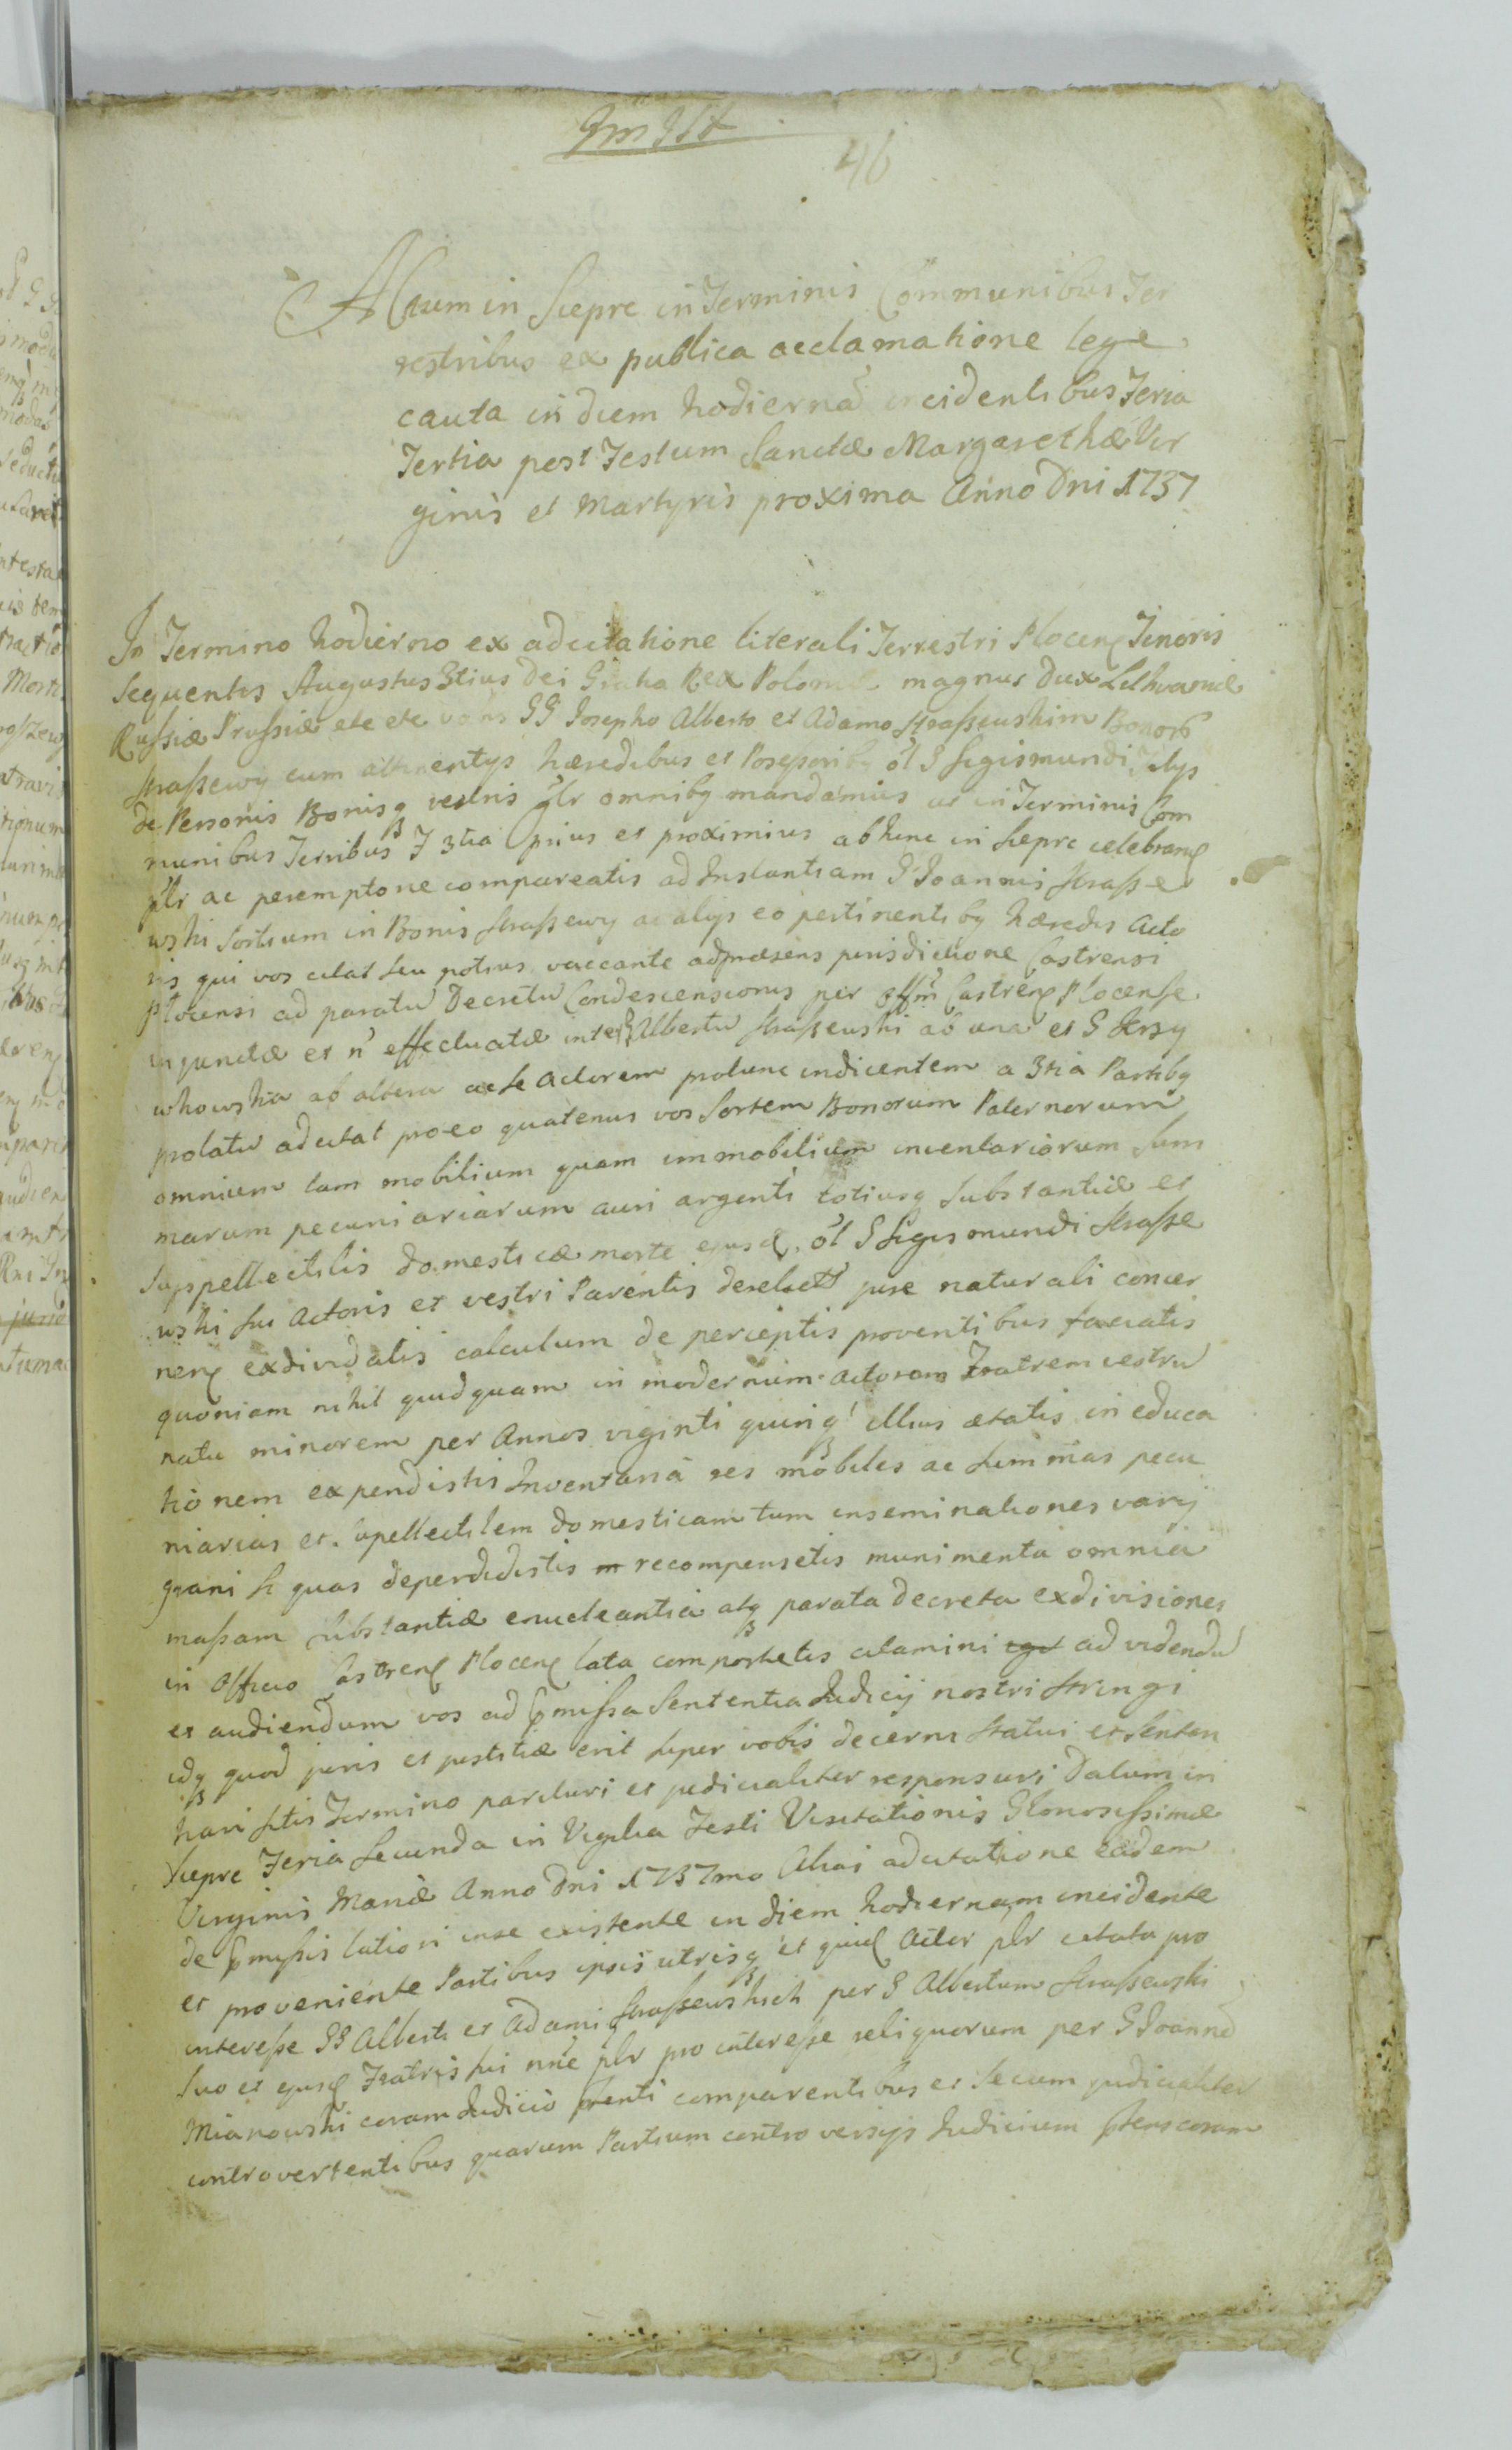 46
Actum in Sieprc in Terminis Communibus Ter
restribus ex publica acclamatione lege
cauta in diem hodiernã incidentibus Feria
Tertia post Festum Sanctæ Margarethæ Vir
ginis et Martyris proxima Anno Dni 1737
In Termino hodierno ex adcitatione literali Terrestri Plocenſ Tenoris
sequentis Augustus 3tius Dei Gratia Rex Poloniæ magnus Dux Lithvaniæ
Russiæ Prussiæ etc etc vobis GG Josepho Alberto et Adamo Strassewskim Bonorũ
Strassewy cum attinentijs hæredibus et Possessoribꝫ ol G Sigismundi Filijs
de Personis Bonisqꝫ vestris glr omnibꝫ mandamus ut in Terminis Com
munibus Terribus F 3tia prius et proximius abhinc in Sieprc celebranſ
plr ac peremptorie compareatis ad Instantiam G Joannis Strasse
wski Sortium in Bonis Strassewy ac alijs eo pertinentibꝫ hæredis Acto
ris qui vos citat seu potius vaccante adpræsens jurisdictione Castrensi
Plocensi ad paratũ Decretũ Condescensionis per Offm Castrenſ Plocense
injunctæ et ñ effectuatæ inter G Albertũ Strassewski ab una et G Krzy
whowska ab altera ac se Actorem protunc indicentem a 3tia Partibꝫ
prolatũ adcitat pro eo quatenus vos Sortem Bonorum Paternorum
omnium tam mobilium quam immobilium inventariorum Sum
marum pecuniariarum auri argenti totiusqꝫ Substantiæ et
Suppellectilis domesticæ morte ejusd. ol G Sigismundi Strasse
wski sui Actoris et vestri Parentis derelictt jure naturali concer
nenſ exdividatis calculum de perceptis proventibus faciatis
quoniam nihil quidquam in modernum Actorem Fratrem vestrũ
natu minorem per Annos viginti quinqꝫ illius ætatis in educa
tionem expendistis Inventaria res mobiles ac summas pecu
niarias et supellectilem domesticam tum inseminationes varij
grani si quas deperdidistis recompensetis munimenta omnia
massam substantiæ enucleantia atqꝫ parata Decreta exdivisiones
in Officio Castrenſ Plocenſ lata comportetis citamini ad videndũ
et audiendum vos ad præmissa Sententia Judicij nostri stringi
idqꝫ quod juris et justitiæ erit super vobis decerni statui et senten
tiari sitis Termino parituri et judicialiter responsuri Datum in
Sieprc Feria Secunda in Vigilia Festi Visitationis Gloriosissimæ
Virginis Mariæ Anno Dni 1737mo Aliai adcitatione eadem
de præmissis latiori inse existente in diem hodiernam incidente
et proveniente Partibus ipsis utrisqꝫ et quid Actor plr citata pro
interesse GG Alberti et Adami Strassewskich per G Albertum Strassewski
suo et ejusd Fratris sui nñe plr pro interesse reliquorum per G Joannẽ
Mianowski coram Judicio prænti comparentibus et secum judicialiter
controvertentibus quarum Partium controversijs Judicium præns coram